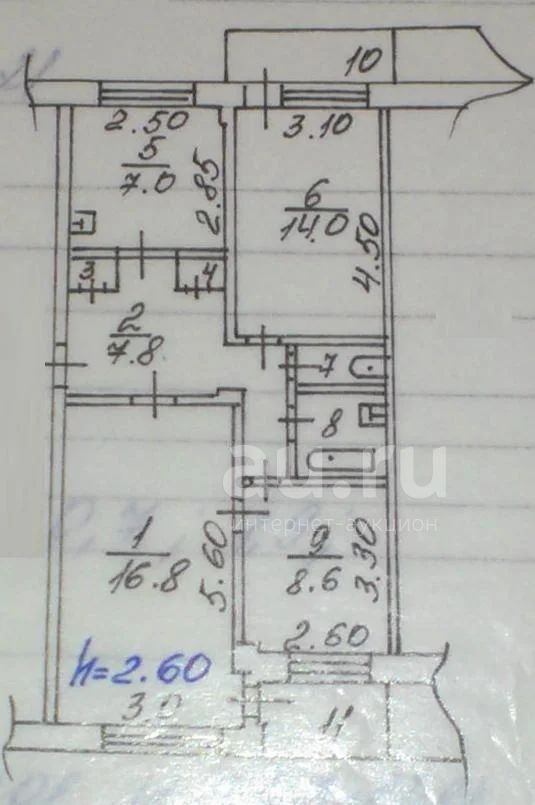 10
2.50
3.10
5
7.0
2.85
6
14.0
4.50
3
4
2
7.8
7
8
au.ru
интернет-аукцион
1
16.8
5.60
9
8.6
3.30
2.60
h=2.60
3.0
11